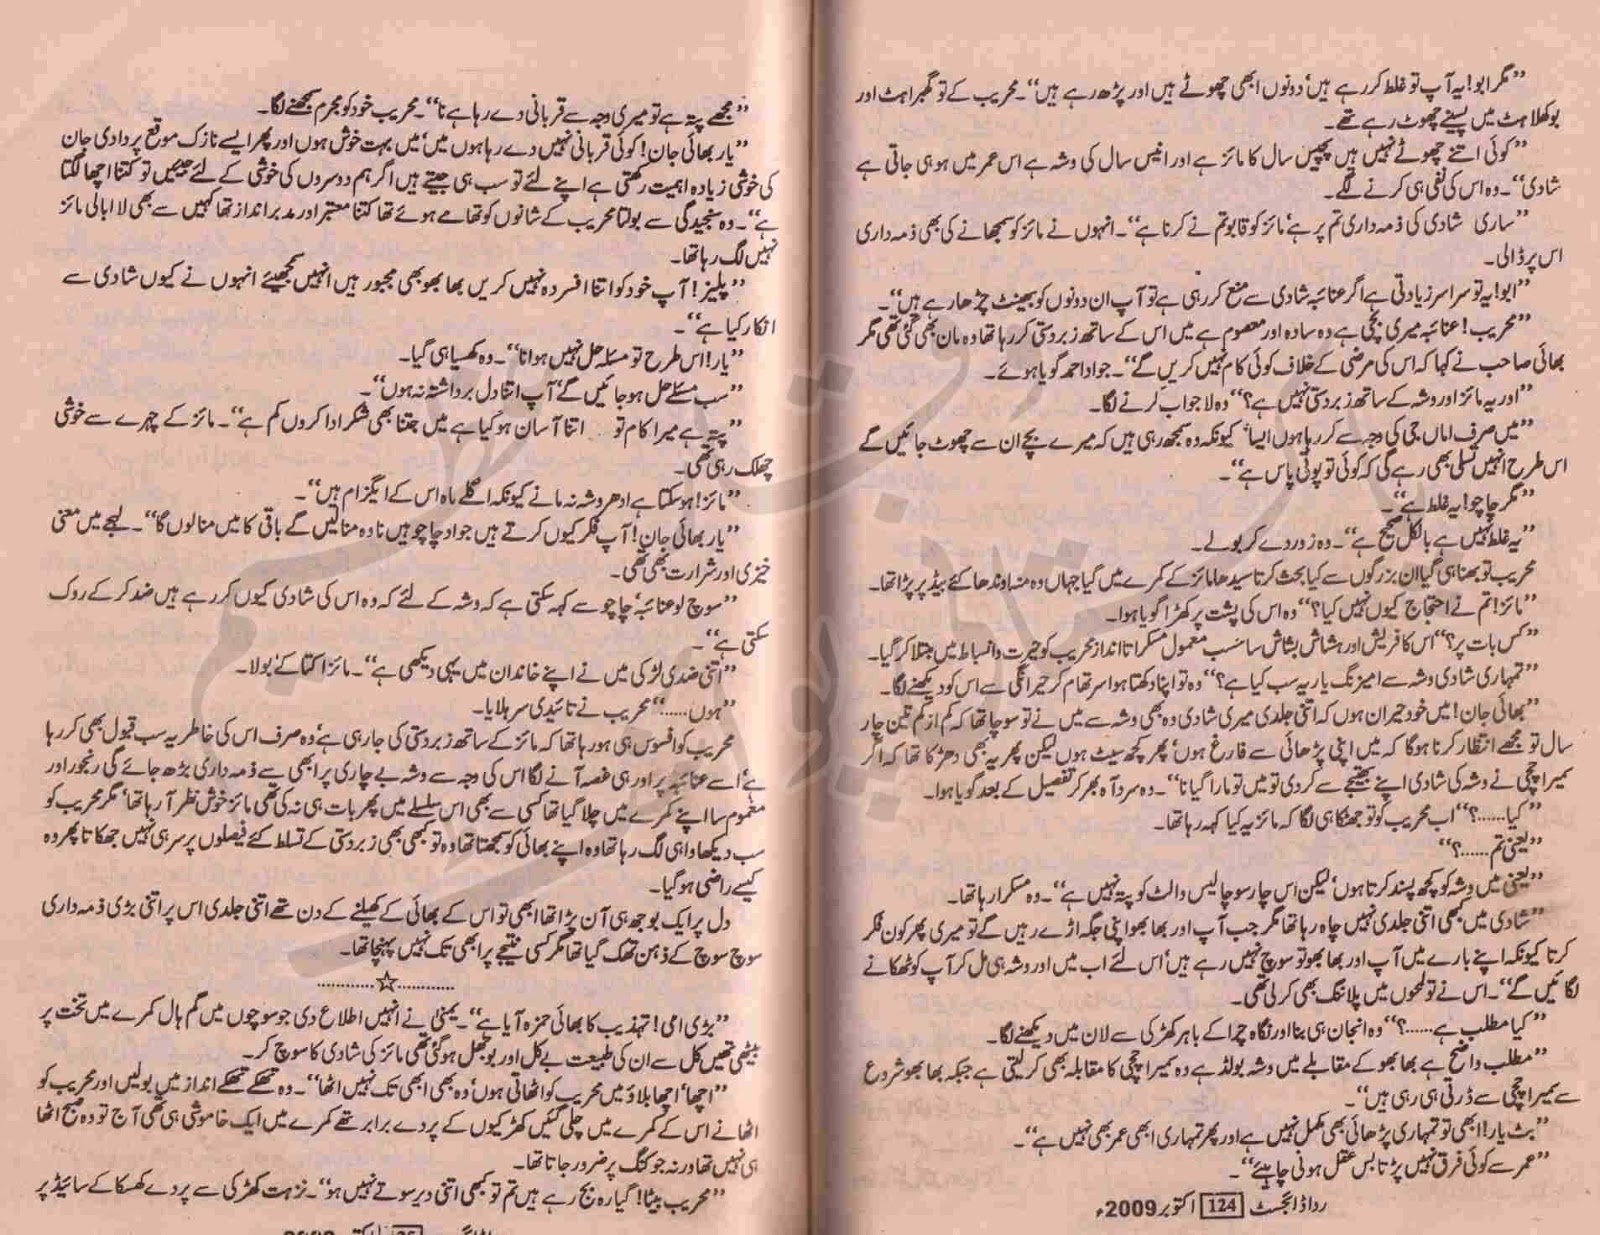 ”مگر ابو! یہ آپ تو غلط کر رہے ہیں‘ دونوں ابھی چھوٹے ہیں اور پڑھ رہے ہیں“۔ محریب کے تو گھبراہٹ اور
بوکھلاہٹ میں پسینے چھوٹ رہے تھے۔
”کوئی اتنے چھوٹے نہیں ہیں پچیس سال کا مائز ہے اور انیس سال کی وشہ ہے اس عمر میں ہو ہی جاتی ہے
شادی“۔ وہ اس کی نفی ہی کرنے لگے۔
”ساری شادی کی ذمہ داری تم پر ہے‘ مائز کو قابو تم نے کرنا ہے“۔ انہوں نے مائز کو سمجھانے کی بھی ذمہ داری
اس پر ڈالی۔
”ابو! یہ تو سراسر زیادتی ہے اگر عنائبہ شادی سے منع کر رہی ہے تو آپ ان دونوں کو بھینٹ چڑھا رہے ہیں“۔
”محریب! عنائبہ میری بچی ہے وہ سادہ اور معصوم ہے میں اس کے ساتھ زبردستی کر رہا تھا وہ مان بھی گئی تھی مگر
بھائی صاحب نے کہا کہ اس کی مرضی کے خلاف کوئی کام نہیں کریں گے“۔ جواد احمد گویا ہوئے۔
”اور یہ مائز اور وشہ کے ساتھ زبردستی نہیں ہے؟“ وہ لاجواب کرنے لگا۔
”میں صرف اماں جی کی وجہ سے کر رہا ہوں ایسا‘ کیونکہ وہ سمجھ رہی ہیں کہ میرے بچے ان سے چھوٹ جائیں گے
اس طرح انہیں تسلی بھی رہے گی کہ کوئی تو پوتی پاس ہے“۔
”مگر چاچو! یہ غلط ہے“۔
”یہ غلط نہیں ہے بالکل صحیح ہے“۔ وہ زور دے کر بولے۔
محریب تو بھنا ہی گیا ان بزرگوں سے کیا بحث کرتا سیدھا مائز کے کمرے میں گیا جہاں وہ منہ اوندھا کئے بیڈ پر پڑا تھا۔
”مائز! تم نے احتجاج کیوں نہیں کیا؟“ وہ اس کی پشت پر کھڑا گویا ہوا۔
”کس بات پر؟“ اس کا فریش اور ہشاش بشاش سا حسب معمول مسکراتا انداز محریب کو حیرت و انبساط میں مبتلا کر گیا۔
”تمہاری شادی وشہ سے امیزنگ یار یہ سب کیا ہے؟“ وہ تو اپنا دکھتا ہوا سر تھام کر حیرانگی سے اس کو دیکھنے لگا۔
”بھائی جان! میں خود حیران ہوں کہ اتنی جلدی میری شادی وہ بھی وشہ سے میں نے تو سوچا تھا کہ کم از کم تین چار
سال تو مجھے انتظار کرنا ہوگا کہ میں اپنی پڑھائی سے فارغ ہوں‘ پھر کچھ سیٹ ہوں لیکن پھر یہ بھی دھڑکا تھا کہ اگر
سمیرا چچی نے وشہ کی شادی اپنے بھتیجے سے کر دی تو میں تو مارا گیا نا“۔ وہ سرد آہ بھر کر تفصیل کے بعد گویا ہوا۔
”کیا......؟“ اب محریب کو تو جھٹکا ہی لگا کہ مائز یہ کیا کہہ رہا تھا۔
”یعنی تم......؟“
”یعنی میں وشہ کو کچھ پسند کرتا ہوں‘ لیکن اس چار سو چالیس والٹ کو پتہ نہیں ہے“۔ وہ مسکرا رہا تھا۔
”شادی میں کبھی اتنی جلدی نہیں چاہ رہا تھا مگر جب آپ اور بھابھو اپنی جگہ اڑے رہیں گے تو میری پھر کون فکر
کرتا کیونکہ اپنے بارے میں آپ اور بھابھو تو سوچ نہیں رہے ہیں‘ اس لئے اب میں اور وشہ ہی مل کر آپ کو ٹھکانے
لگائیں گے“۔ اس نے تو لمحوں میں پلاننگ بھی کر لی تھی۔
”کیا مطلب ہے......؟“ وہ انجان ہی بنا اور نگاہ چرا کے باہر کھڑکی سے لان میں دیکھنے لگا۔
”مطلب واضح ہے بھابھو کے مقابلے میں وشہ بولڈ ہے وہ سمیرا چچی کا مقابلہ بھی کر لیتی ہے جبکہ بھابھو شروع
سے سمیرا چچی سے ڈرتی ہی رہی ہیں“۔
”بٹ یار! ابھی تو تمہاری پڑھائی بھی مکمل نہیں ہے اور پھر تمہاری ابھی عمر بھی نہیں ہے“۔
”عمر سے کوئی فرق نہیں پڑتا بس عقل ہونی چاہئے“۔
رداڈائجسٹ 124 اکتوبر 2009ء
”مجھے پتہ ہے تو میری وجہ سے قربانی دے رہا ہے نا“۔ محریب خود کو مجرم سمجھنے لگا۔
”یار بھائی جان! کوئی قربانی نہیں دے رہا ہوں میں‘ میں بہت خوش ہوں اور پھر ایسے نازک موقع پر دادی جان
کی خوشی زیادہ اہمیت رکھتی ہے اپنے لئے تو سب ہی جیتے ہیں اگر ہم دوسروں کی خوشی کے لئے جئیں تو کتنا اچھا لگتا
ہے“۔ وہ سنجیدگی سے بولتا محریب کے شانوں کو تھامے ہوئے تھا کتنا معتبر اور مدبر انداز تھا کہیں سے بھی لاابالی مائز
نہیں لگ رہا تھا۔
”پلیز! آپ خود کو اتنا افسردہ نہیں کریں بھابھو بھی مجبور ہیں انہیں سمجھیئے انہوں نے کیوں شادی سے
انکار کیا ہے“۔
”یار! اس طرح تو مسئلہ حل نہیں ہوا نا“۔ وہ کھسیا ہی گیا۔
”سب مسئلے حل ہو جائیں گے‘ آپ اتنا دل برداشتہ نہ ہوں“۔
”پتہ ہے میرا کام تو اتنا آسان ہوگیا ہے میں جتنا بھی شکر ادا کروں کم ہے“۔ مائز کے چہرے سے خوشی
چھلک رہی تھی۔
”مائز! ہوسکتا ہے ادھر وشہ نہ مانے کیونکہ اگلے ماہ اس کے ایگزام ہیں“۔
”یار بھائی جان! آپ فکر کیوں کرتے ہیں جواد چاچو ہیں نا وہ منا لیں گے باقی کا میں منا لوں گا“۔ لہجے میں معنی
خیزی اور شرارت بھی تھی۔
”سوچ لو عنائبہ‘ چاچو سے کہہ سکتی ہے کہ وشہ کے لئے کہ وہ اس کی شادی کیوں کر رہے ہیں ضد کر کے روک
سکتی ہے“۔
”اتنی ضدی لڑکی میں نے اپنے خاندان میں یہی دیکھی ہے“۔ مائز اکتا کے بولا۔
”ہوں......“ محریب نے تائیدی سر ہلایا۔
محریب کو افسوس ہی ہو رہا تھا کہ مائز کے ساتھ زبردستی کی جا رہی ہے‘ وہ صرف اس کی خاطر یہ سب قبول بھی کر رہا
ہے‘ اسے عنائبہ پر اور ہی غصہ آنے لگا اس کی وجہ سے وشہ بے چاری پر ابھی سے ذمہ داری بڑھ جائے گی رنجور اور
مغموم سا اپنے کمرے میں چلا گیا تھا کسی سے بھی اس سلسلے میں پھر بات ہی نہ کی تھی مائز خوش نظر آ رہا تھا‘ مگر محریب کو
سب دیکھاوا ہی لگ رہا تھا وہ اپنے بھائی کو سمجھتا تھا وہ تو کبھی بھی زبردستی کے تسلط کئے فیصلوں پر سر ہی نہیں جھکاتا پھر وہ
کیسے راضی ہوگیا۔
دل پر ایک بوجھ ہی آن پڑا تھا ابھی تو اس کے بھائی کے کھیلنے کے دن تھے اتنی جلدی اس پر اتنی بڑی ذمہ داری
سوچ سوچ کے ذہن تھک گیا تھا مگر کسی نتیجے پر ابھی تک نہیں پہنچا تھا۔
..........☆..........
”بڑی امی! تہذیب کا بھائی حمزہ آیا ہے“۔ یمنیٰ نے انہیں اطلاع دی جو سوچوں میں گم ہال کمرے میں تخت پر
بیٹھی تھیں کل سے ان کی طبیعت بے کل اور بوجھل ہوگئی تھی مائز کی شادی کا سوچ کر۔
”اچھا‘ اچھا بلاؤ میں محریب کو اٹھاتی ہوں‘ وہ بھی ابھی تک نہیں اٹھا“۔ وہ تھکے تھکے انداز میں بولیں اور محریب کو
اٹھانے اس کے کمرے میں چلی گئیں کھڑکیوں کے پردے برابر تھے کمرے میں ایک خاموشی ہی تھی آج تو وہ صبح اٹھا
ہی نہیں تھا ورنہ جوگنگ پر ضرور جاتا تھا۔
”محریب بیٹا! گیارہ بج رہے ہیں تم تو کبھی اتنی دیر سوتے نہیں ہو“۔ نزہت کھڑکی سے پردے کھسکا کے سائیڈ پر